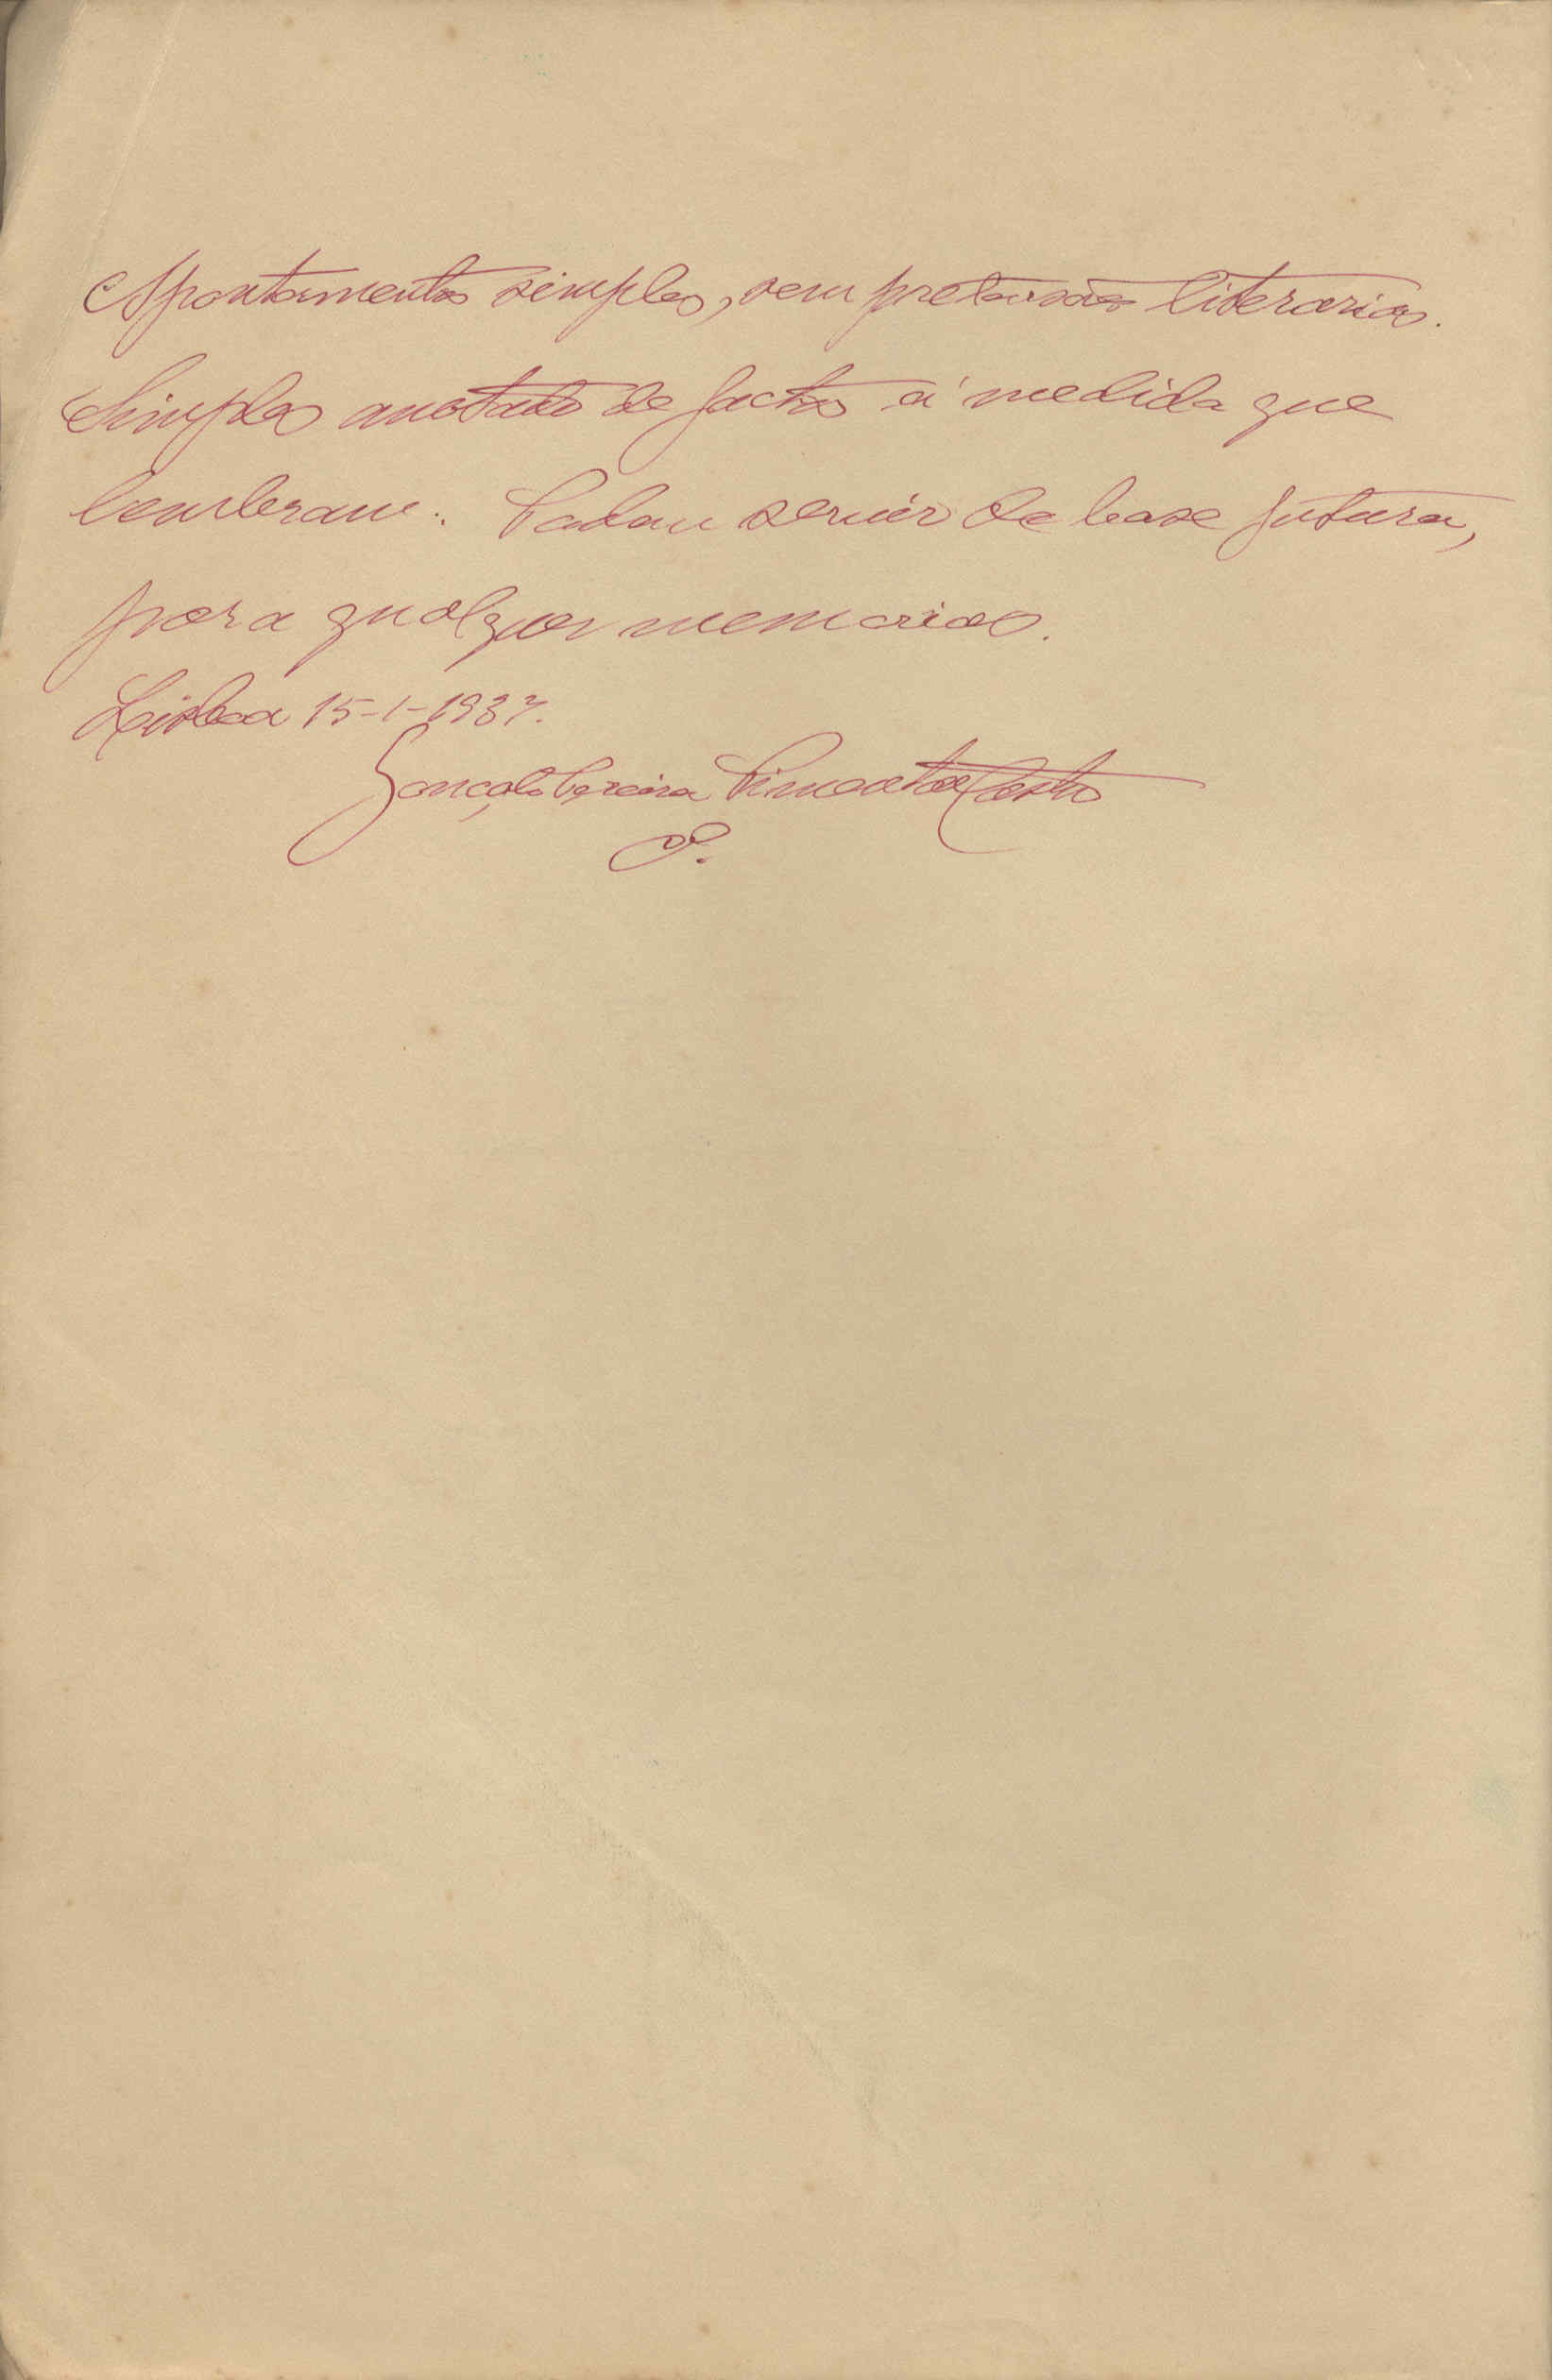 Apontamentos simples, sem pretensões literarias.
Simples anotado de factos á medida que
lembram. Podem servir de base futura,
para qualquer memorias.
Lisboa 15-1-1937.
Gonçalo Pereira Pimenta de Castro